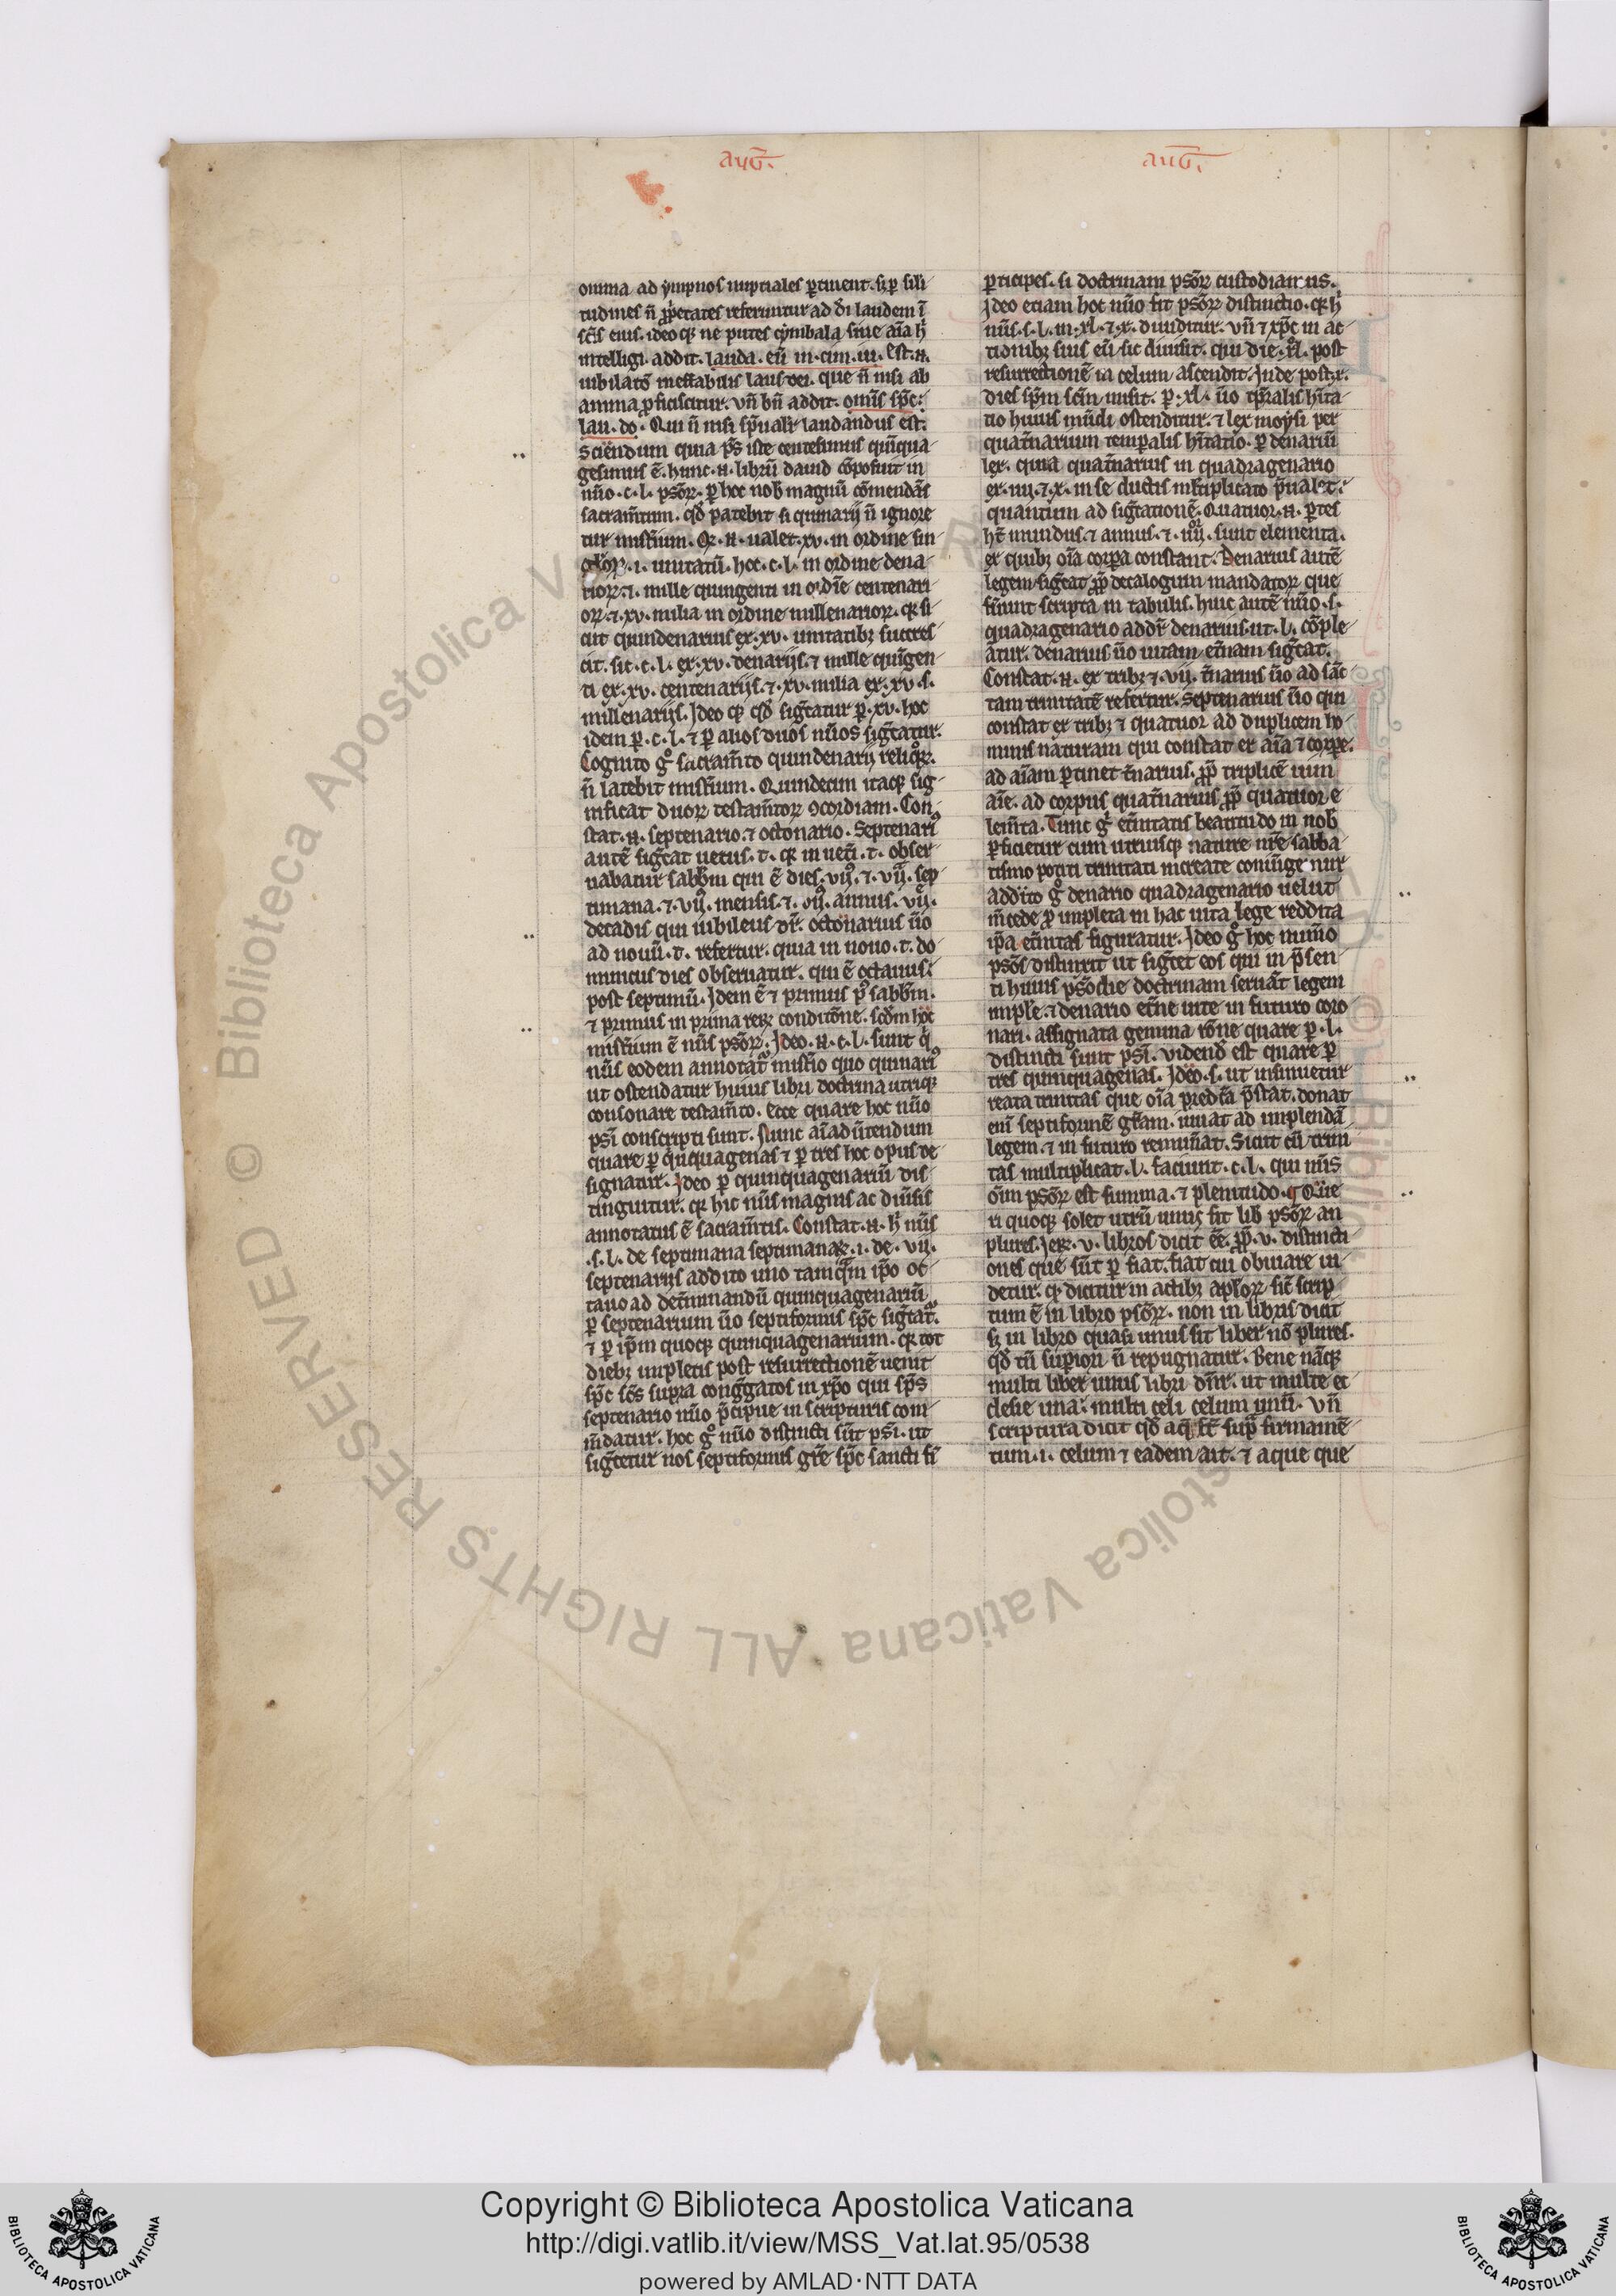 aug̅.
aug̅.
omnia ad ympnos nuptiales ꝑtinent. sꝫ ꝑ sili
tudines n̅ ꝓp̅etates referuntur ad di̅ laudem i̅
sc̅is eius. ideoqꝫ ne putes cymbala sine ai̅a h̅
intelligi. addit. lauda. eu̅ in. cim. iu. Est. n.
iubilat̅o ineffabilis laus dei. que n̅ nisi ab
anima ꝓficiscitur. vn̅ bn̅ addit. omīs sp̅c.
lau. do. Qui n̅ nisi sp̅ualit̅ laudandus est.
Sciendum quia ps̅ iste centesimus qui̅qua
gesimus e̅. hunc. n. libru̅ dauid co̅posuit in
nu̅o .c.l. pso̅rꝝ. ꝑ hoc nob̅ magnu̅ co̅mendās
sacram̅tum. qd̅ patebit si quinarij n̅ ignore
tur mist̅ium. Qꝛ. n. ualet .xv. in ordine sin
.i. unitatu̅. hoc .c.l. in ordine dena
rioꝝ. ⁊. mille quingenti in ordi̅e centenari
oꝝ. ⁊ .xv. milia in ordine millenarioꝝ. qꝛ si
cut quindenarius ex .xv. unitatibꝫ succres
cit. sic .c.l. ex .xv. denarijs. ⁊ mille qui̅gen
ti ex .xv. centenarijs. ⁊ .xv. milia ex .xv. s.
millenarijs. Ideo qꝫ qd̅ sig̅tatur ꝑ .xv. hoc
idem ꝑ .c.l. ⁊ ꝑ alios duos nu̅os sig̅tatur.
Cognito gͦ sacram̅to quindenarij reliqͦꝝ
n̅ latebit mist̅ium. Quindecim itaqꝫ sig
nificat duoꝝ testam̅toꝝ ꝯcordiam. Con
stat. n. septenario. ⁊ octonario. Septenariꝰ
aute̅ sig̅tat uetus. t. qꝛ in uet̅i. t. obser
uabatur sabb̅m qui e̅ dies .vijꝰ. ⁊ .vijᵃ. sep
timana. ⁊ .vijꝰ. mensis. ⁊ .vijꝰ. annus. vijᵃ.
decadis qui iubileus dr̅. octonarius u̅o
ad nouu̅. t. refertur. quia in nouo. t. do
minicus dies obseruatur. qui e̅ octauus
post septimu̅. Idem e̅ ⁊ primus pꝰ sabb̅m.
⁊ primus in prima reꝝ condit̅one. scd̅m hoc
mist̅ium e̅ nu̅s pso̅rꝝ. Ideo. n. c.l. sunt qͥ
nu̅s eodem annotat̅ mist̅io quo quinariꝰ
ut ostendatur huius libri doctrina utriqꝫ
consonare testam̅to. Ecce quare hoc nu̅o
psi̅ conscripti sunt. Nunc ai̅adu̅tendum
quare ꝑ qui̅quagenas ⁊ ꝑ tres hoc opus de
signatur. Ideo ꝑ quinquagenariu̅ dis
tinguitur. qꝛ hic nu̅s magnis ac diu̅sis
annotatus e̅ sacram̅tis. Constat. n. h̅ nu̅s
.s. l. de septimana septimanaꝝ .i. de .vij.
septenarijs addito uno tamqͣm ip̅o oc
tauo ad det̅minandu̅ quinquagenariu̅.
ꝑ septenarium u̅o septiformis sp̅c sig̅tat̅.
⁊ ꝑ ip̅m quoqꝫ quinquagenarium. qꝛ tot
diebꝫ impletis post resurrectione̅ uenit
sp̅c sc̅s supra cong̅gatos in xp̅o qui sp̅s
septenario nu̅o p̅cipue in scripturis com
m̅datur. hoc gͦ nu̅o distincti su̅t psi̅. ut
sig̅tetur nos septiformis gr̅e sp̅c sancti fi̅
ꝑticipes. si doctrinam pso̅rꝝ custodiamus.
Ideo etiam hoc nu̅o fit pso̅rꝝ distinctio. qꝛ h̅
nu̅s .s. l. in .xl. ⁊ .x. diuiditur. vn̅ ⁊ xp̅c in ac
tionibꝫ suis eu̅ sic diuisit. qui die .xl. post
resurrectione̅ in celum ascendit. Inde post .x.
dies sp̅m sc̅m misit. ꝑ .xl. u̅o tp̅ralis hi̅ta
tio huius mu̅di ostenditur. ⁊ lex moysi per
quat̅narium temporalis hi̅tatio. ꝑ denariu̅
lex. quia quat̅narius in quadragenario
ex .iiij. ⁊ .x. in se ductis ml̅tiplicato p̅ualet.
quantum ad sig̅tatione̅. Quatuor. n. ꝑtes
ht̅ mundus. ⁊ annus. ⁊ .iiijᵒʳ. sunt elementa.
ex quibꝫ oi̅a corꝑa constant. Denarius aute̅
legem sig̅tat ꝓp̅ decalogum mandatoꝝ que
fu̅runt scripta in tabulis. huic aute̅ nu̅o .s.
quadragenario addr̅ denarius. ut .l. co̅ple
atur. denarius u̅o uitam et̅nam sig̅tat.
Constat. n. ex tribꝫ ⁊ .vij. t̅narius u̅o ad sa̅c
tam trinitate̅ refertur. Septenarius u̅o qui
constat ex tribꝫ ⁊ quatuor ad duplicem ho
minis naturam qui constat ex ai̅a ⁊ corꝑe.
ad ai̅am ꝑtinet t̅narius. ꝓp̅ triplice̅ uim
ai̅e. ad corpus quat̅narius ꝓp̅ quatuor e
lem̅ta. Tunc gͦ et̅nitatis beatitudo in nob̅
ꝑficietur cum utriusqꝫ nature nr̅e sabba
tismo potiti trinitati increate coniu̅ge nur
addito gͦ denario quadragenario uelut
m̅cede ꝓ impleta in hac uita lege reddita
ip̅a et̅nitas figuratur. Ideo gͦ hoc num̅o
psos̅ distinxit ut sig̅tet eos qui in p̅sen
ti huius psodie doctrinam seruāt legem
imple. ⁊ denario et̅ne uite in futuro coro
nari. assignata gemina ro̅ne quare ꝑ .l.
distincti sunt psi̅. videnď est quare ꝑ
tres quinquagenas. Ideo .s. ut insinuetur
reata trinitas que oi̅a predc̅a p̅stat. donat
eni̅ septiforme̅ gr̅am. iuuat ad implenda̅
legem. ⁊ in futuro remun̅at. Sicut cu̅ trini
tas multiplicat .l. faciunt .c.l. qui nu̅s
oi̅m pso̅rꝝ est summa. ⁊ plenitudo. ¶ Que
ri quoqꝫ solet utru̅ unus sit lib̅ pso̅rꝝ an
plures. Jer. v. libros dicit ee̅. ꝓp̅ .v. distincti
ones que su̅t ꝑ fiat. fiat cui obuiare ui
detur. qꝫ dicitur in actibꝫ apl̅oꝝ sic̅ scrip
tum e̅ in libro pso̅rꝝ. non in libris dicit
sꝫ in libro quasi unus sit liber no̅ plures.
qd̅ tn̅ suꝑiori n̅ repugnatur. Bene na̅qꝫ
multi liber unus libri dn̅r. ut multe ec
clesie una. multi celi celum unu̅. vn̅
scriptura dicit qd̅ aq̅ su̅t supͣ firmame̅
tum .i. celum ⁊ eadem ait. ⁊ aque que
Copyright © Biblioteca Apostolica Vaticana
http://digi.vatlib.it/view/MSS_Vat.lat.95/0538
powered by AMLAD·NTT DATA
BIBLIOTECA APOSTOLICA VATICANA
BIBLIOTECA APOSTOLICA VATICANA
© Biblioteca Apostolica Vaticana ALL RIGHTS RESERVED